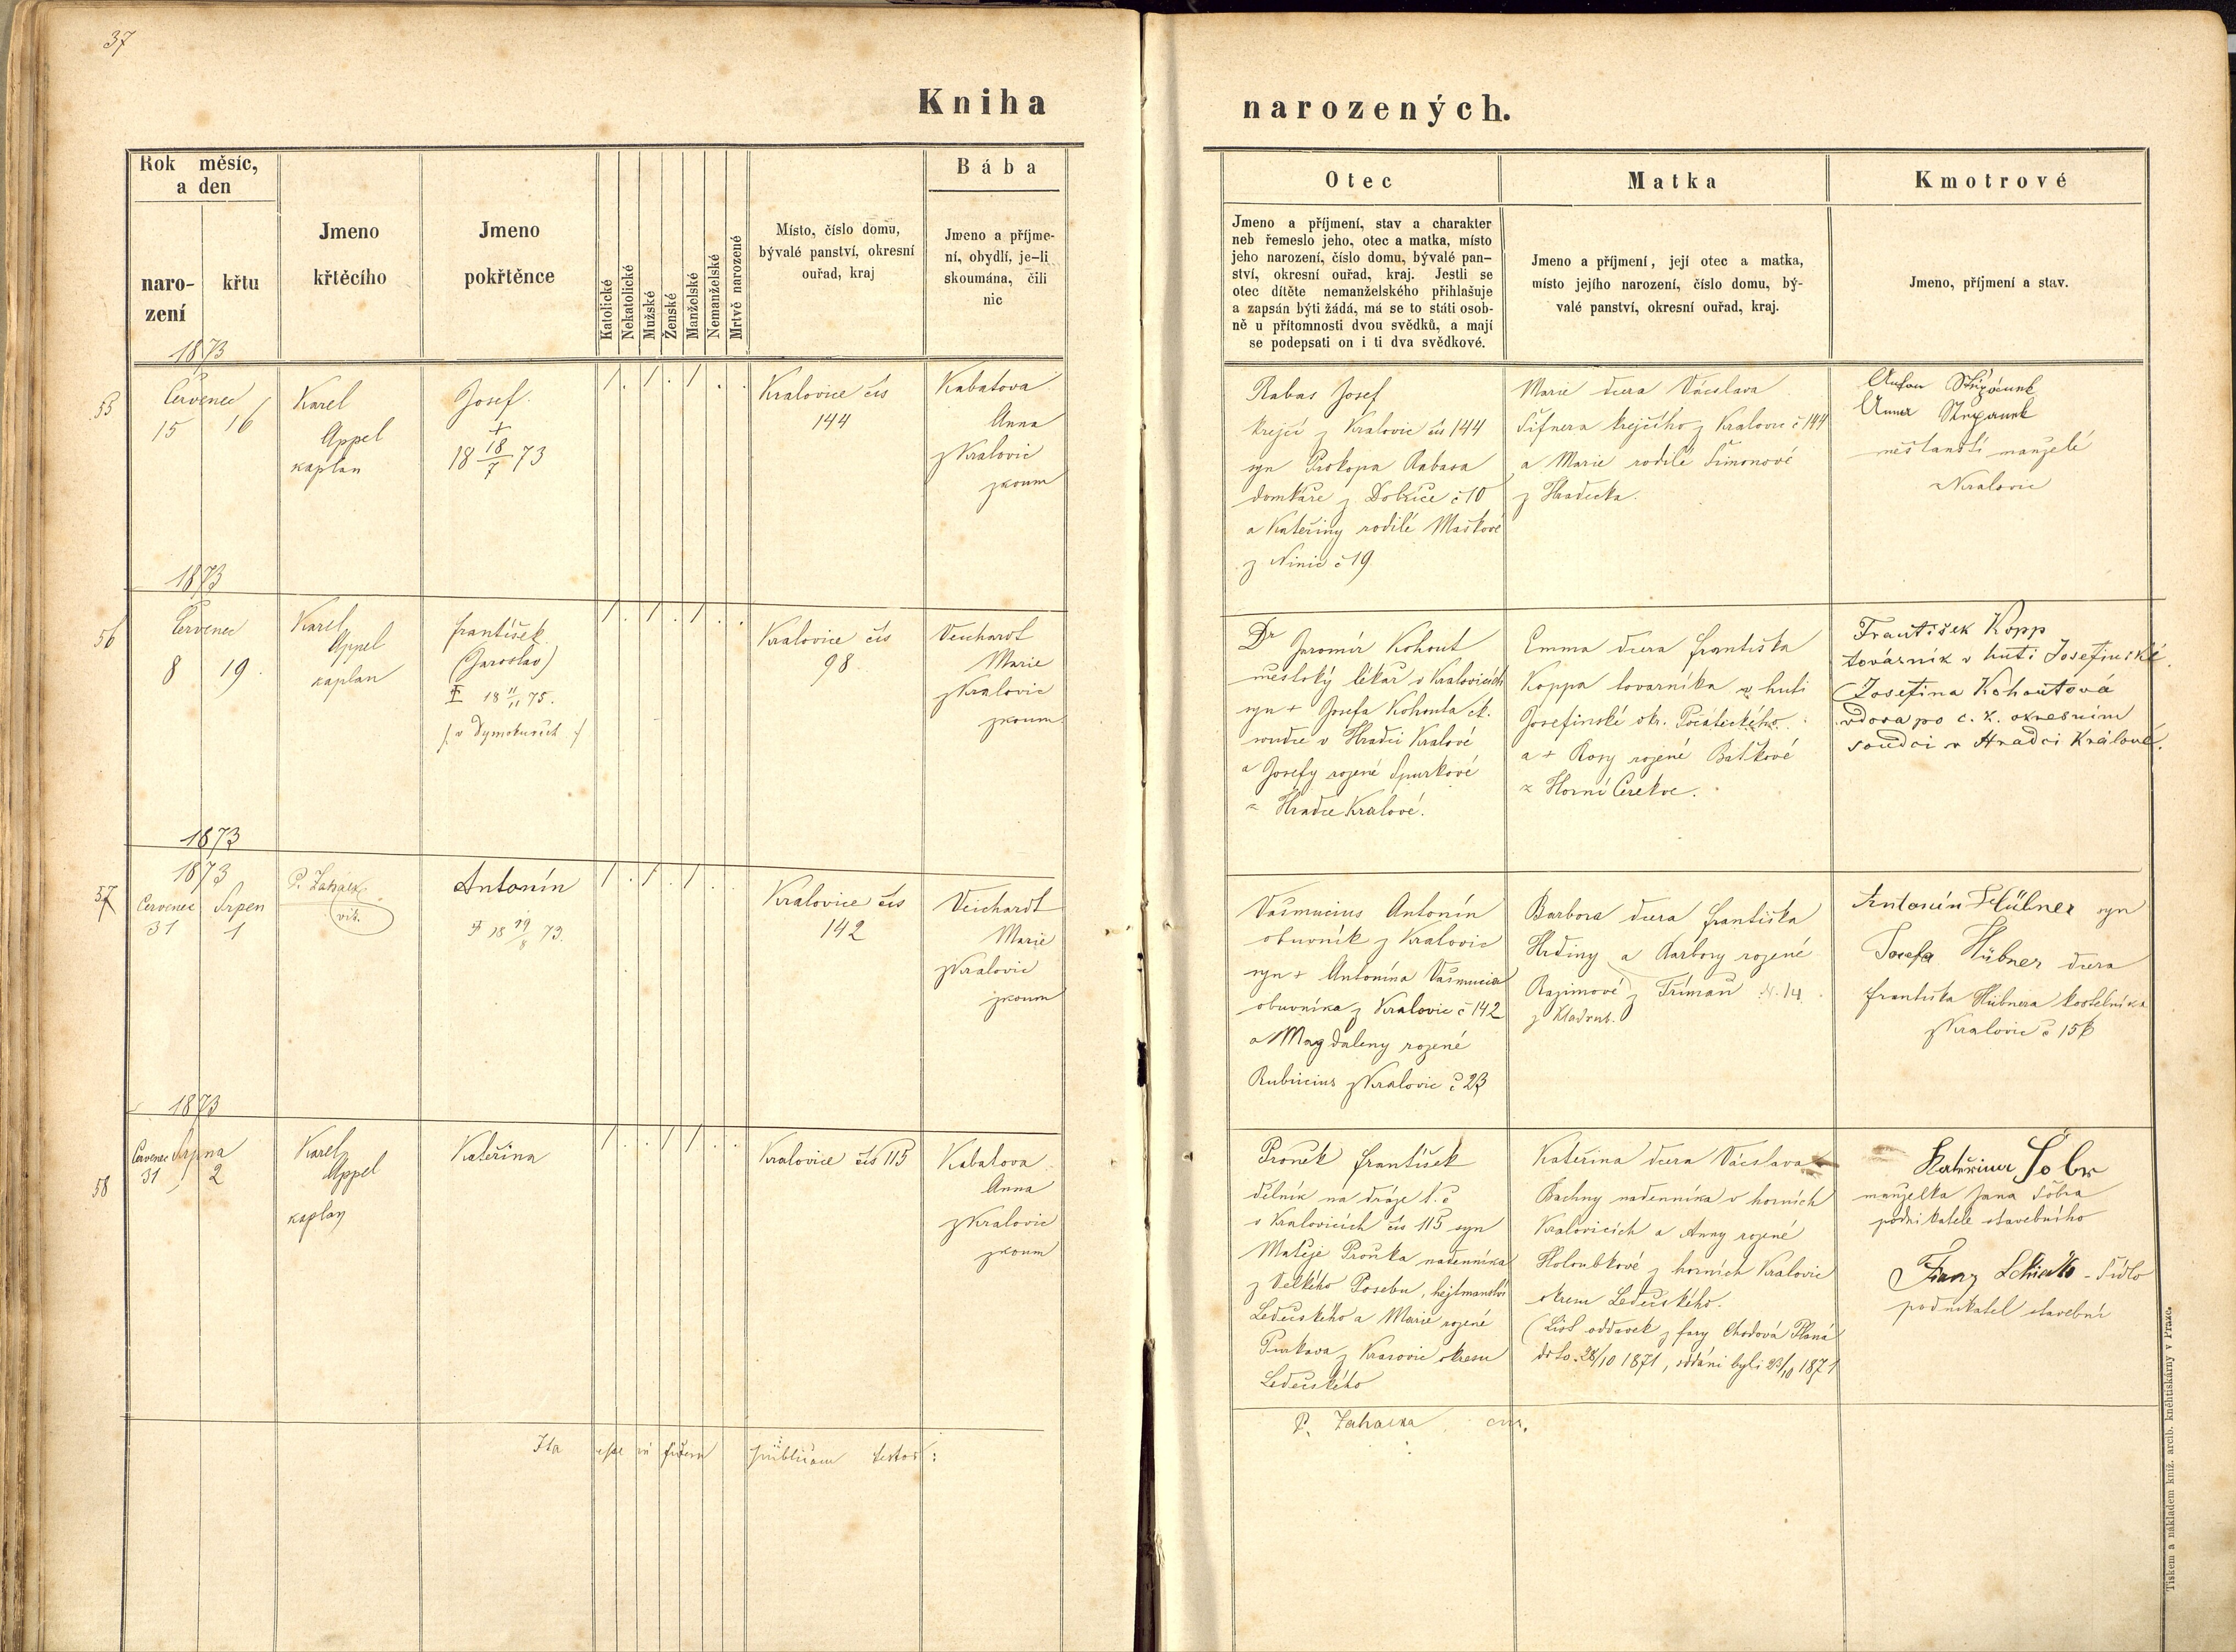 37
Kniha narozených.
Rok měsíc,
a den
naro-
zení
křtu
Jmeno
křtěcího
Jmeno
pokřtěnce
Katolické
Nekatolické
Mužské
Ženské
Manželské
Nemanželské
Mrtvě narozené
Místo, číslo domu,
bývalé panství, okresní
ouřad, kraj
Bába
Jmeno a příjme-
ní, obydlí, je-li
skoumána, čili
nic
Otec
Jmeno a příjmení, stav a charakter
neb řemeslo jeho, otec a matka, místo
jeho narození, číslo domu, bývalé pan-
ství, okresní ouřad, kraj. Jestli se
otec dítěte nemanželského přihlašuje
a zapsán býti žádá, má se to státi osob-
ně u přítomnosti dvou svědků, a mají
se podepsati on i ti dva svědkové.
Matka
Jmeno a příjmení, její otec a matka,
místo jejího narození, číslo domu, bý-
valé panství, okresní ouřad, kraj.
Kmotrové
Jmeno, příjmení a stav.
1873
55
Červenec
15 16
Karel
Appel
kaplan
Josef
+
18 18/7 73
1 . 1 . 1 . .
Kralovice čís
144
Kabatova
Anna
z Kralovic
zkoum
Rabas Josef
krejčí z Kralovic čís 144
syn Prokopa Rabasa
domkáře z Dobříce č 10
a Kateřiny rodilé Maškové
z Ninic č 19
Marie dcera Václava
Šifnera krejčího z Kralovic č 144
a Marie rodilé Šimonové
z Hradecka.
Anna
měšťanští manželé
z Kralovic
1873
56
Červenec
8 19
Karel
Appel
kaplan
František
(Jaroslav)
18 11/11 75.
/: v Dymokurích :/
1 . 1 . 1 . .
Kralovice čís
98
Veichardt
Marie
z Kralovic
zkoum.
Dr Jaromír Kohout
městský lékař v Kralovicích
syn + Josefa Kohouta ck.
soudce v Hradci Králové
a Josefy rozené Špurkové
z Hradce Králové.
Emma dcera Františka
Koppa továrníka v huti
Josefínské okr. Počáteckého
a + Rosy rojené
z Horní Cerekve.
František Kopp
továrník v huti Josefínské.
Josefina Kohoutová
vdova po c. k. okresním
soudci v Hradci Králové.
1873
57
1873
Červenec Srpen
31 1
P. Zahálka
Antonín
18 19/8 73.
1 . 1 . 1 . .
Kralovice čís
142
Veichardt
Marie
z Kralovic
zkoum
Vašmucius Antonín
obuvník z Kralovic
syn + Antonína Vašmucia
obuvníka z Kralovic č 142
a Magdaleny rozené
z Kralovic č 23
Barbora dcera Františka
Hrdiny a Barbory rozené
Razimové z Tříman N. 14
z Kladrub.
Antonín Hübner syn
Josefa Hübner dcera
Františka Hübnera kostelníka
z Kralovic č 156
1873
58
Červenec Srpna
31 2
Karel
Appel
kaplan
Kateřina
1 . . 1 1 . .
Kralovice čís 115
Kabatova
Anna
z Kralovic
zkoum
František
dělník na dráze t. č
v Kralovicích čís 115 syn
Matěje nadenníka
z Velkého hejtmanství
Ledečského a Marie rozené
z okresu
Ledečského
Kateřina dcera Václava
Bachny nadenníka v horních
Kralovicích a Anny rozené
Holoubkové z horních Kralovic
okresu Ledečského.
(List oddavek z fary Chodová Planá
ddto. 28/10 1871, oddáni byli 23/10 1871
Kateřina Šobr
manželka Jana Šobra
podnikatele stavebního
Franz
podnikatel stavební
Ita esse in fidem publicam testor:
P. Zahalka
Tiskem a nákladem kníž. arcib. kněhtiskárny v Praze.